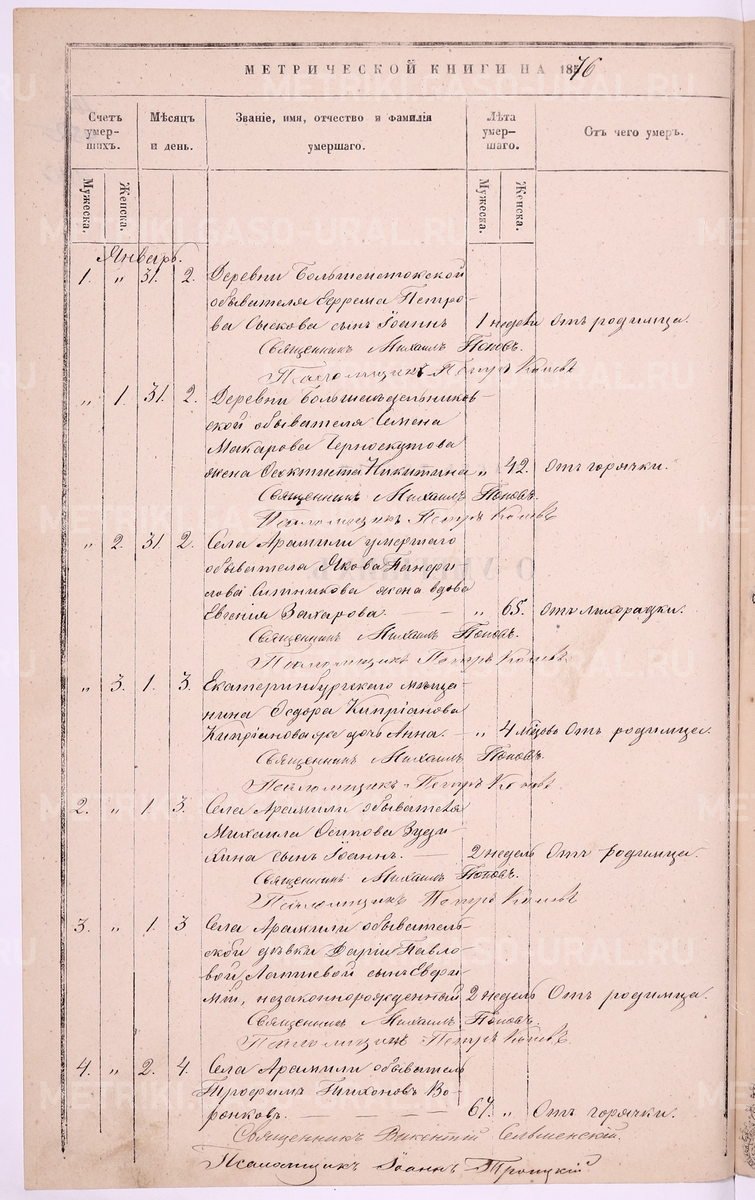 МЕТРИЧЕСКОЙ КНИГИ НА 1876
Счетъ умер-шихъ. Мѣсяцъ и день. Званіе, имя, отчество и фамилія умершаго. Лѣта умер-шаго. Отъ чего умеръ.
Мужеска. Женска. Мужеска. Женска.
Январь.
1. " 31. 2. Деревни Большеистокской
обывателя Ефрема Петро-
ва Сыскова сынъ Іоаннъ 1 недѣли Отъ родимца.
Священникъ Михаилъ Поповъ.
Псаломщикъ Петръ
" 1. 31. 2. Деревни
ской обывателя Семена
Макарова Черноскутова
жена Ѳеоктиста Никитина " 42. Отъ горячки.
Священникъ Михаилъ Поповъ.
Псаломщикъ Петръ
" 2. 31. 2. Села Арамили умершаго
обывателя Якова Панфи-
лова Ситникова жена вдова
Евгенія Захарова. " 65. Отъ лихорадки.
Священникъ Михаилъ Поповъ.
Псаломщикъ Петръ
" 3. 1. 3. Екатеринбургскаго мѣща-
нина Ѳедора Кипріанова
Кипріанова же дочь Анна. " 4 Отъ родимца.
Священникъ Михаилъ Поповъ.
Псаломщикъ Петръ
2. " 1. 3. Села Арамили обывателя
Михаила Осипова
сынъ Іоаннъ. 2 недѣль Отъ родимца.
Священникъ Михаилъ Поповъ.
Псаломщикъ Петръ
3. " 1. 3 Села Арамили обыватель-
ской дѣвки Даріи Павло-
вой Лаптевой сынъ Евфи-
мій, незаконнорожденный 2 недѣль Отъ родимца.
Священникъ Михаилъ Поповъ.
Псаломщикъ Петръ
4. " 2. 4. Села Арамили обыватель
Трофимъ Тихоновъ Во-
ронковъ. 67. " Отъ горячки.
Священникъ Викентій
Псаломщикъ Іоаннъ Троицкій